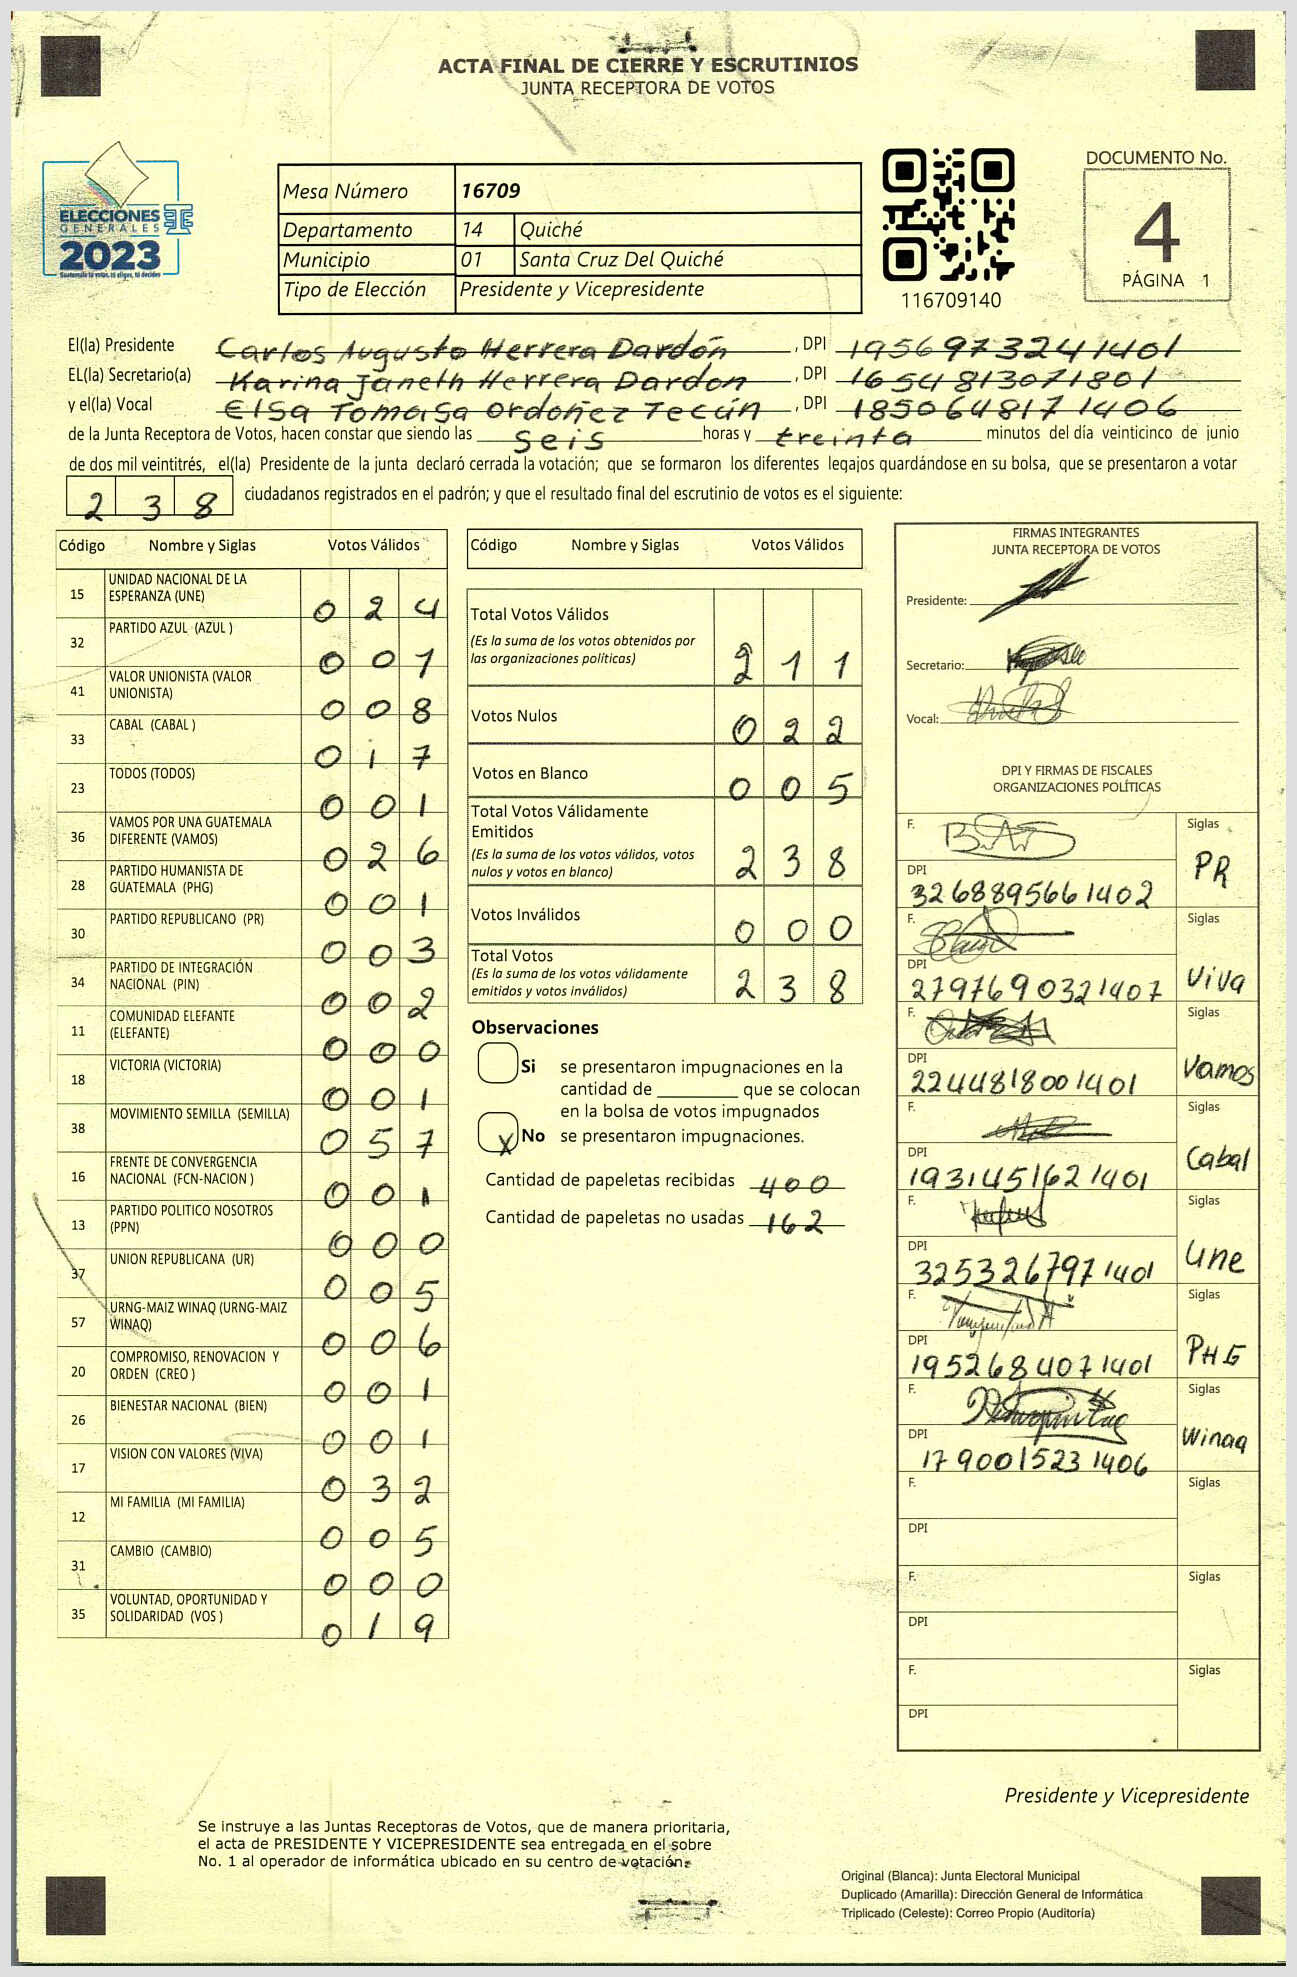 ACTA FINAL DE CIERRE Y ESCRUTINIOS
JUNTA RECEPTORA DE VOTOS
ELECCIONES
GENERALES
2023
Guatemala tú votas, tú eliges, tú decides
Mesa Número 16709
Departamento 14 Quiché
Municipio 01 Santa Cruz Del Quiché
Tipo de Elección Presidente y Vicepresidente
116709140
DOCUMENTO No.
4
PÁGINA 1
El(la) Presidente Carlos Augusto Herrera Dardón, DPI 1956973241401
EL(la) Secretario(a) Karina Janeth Herrera Dardon, DPI 1654813071801
y el(la) Vocal Elsa Tomasa Ordoñez Tecún, DPI 1850648171406
de la Junta Receptora de Votos, hacen constar que siendo las seis horas y treinta minutos del día veinticinco de junio
de dos mil veintitrés, el(la) Presidente de la junta declaró cerrada la votación; que se formaron los diferentes legajos guardándose en su bolsa, que se presentaron a votar
238 ciudadanos registrados en el padrón; y que el resultado final del escrutinio de votos es el siguiente:
Código Nombre y Siglas Votos Válidos
15 UNIDAD NACIONAL DE LA ESPERANZA (UNE) 024
32 PARTIDO AZUL (AZUL ) 001
41 VALOR UNIONISTA (VALOR UNIONISTA) 008
33 CABAL (CABAL ) 017
23 TODOS (TODOS) 001
36 VAMOS POR UNA GUATEMALA DIFERENTE (VAMOS) 026
28 PARTIDO HUMANISTA DE GUATEMALA (PHG) 001
30 PARTIDO REPUBLICANO (PR) 003
34 PARTIDO DE INTEGRACIÓN NACIONAL (PIN) 002
11 COMUNIDAD ELEFANTE (ELEFANTE) 000
18 VICTORIA (VICTORIA) 001
38 MOVIMIENTO SEMILLA (SEMILLA) 057
16 FRENTE DE CONVERGENCIA NACIONAL (FCN-NACION ) 001
13 PARTIDO POLITICO NOSOTROS (PPN) 000
37 UNION REPUBLICANA (UR) 005
57 URNG-MAIZ WINAQ (URNG-MAIZ WINAQ) 006
20 COMPROMISO, RENOVACION Y ORDEN (CREO ) 001
26 BIENESTAR NACIONAL (BIEN) 001
17 VISION CON VALORES (VIVA) 032
12 MI FAMILIA (MI FAMILIA) 005
31 CAMBIO (CAMBIO) 000
35 VOLUNTAD, OPORTUNIDAD Y SOLIDARIDAD (VOS ) 019
Código Nombre y Siglas Votos Válidos
Total Votos Válidos 211
(Es la suma de los votos obtenidos por
las organizaciones políticas)
Votos Nulos 022
Votos en Blanco 005
Total Votos Válidamente
Emitidos 238
(Es la suma de los votos válidos, votos
nulos y votos en blanco)
Votos Inválidos 000
Total Votos 238
(Es la suma de los votos válidamente
emitidos y votos inválidos)
Observaciones
Si se presentaron impugnaciones en la
cantidad de ________ que se colocan
en la bolsa de votos impugnados
X No se presentaron impugnaciones.
Cantidad de papeletas recibidas 400
Cantidad de papeletas no usadas 162
FIRMAS INTEGRANTES
JUNTA RECEPTORA DE VOTOS
Presidente:
Secretario:
Vocal:
DPI Y FIRMAS DE FISCALES
ORGANIZACIONES POLÍTICAS
F. Siglas PR
DPI 3268895661402
F. Siglas Viva
DPI 2797690321407
F. Siglas Vamos
DPI 2244818001401
F. Siglas Cabal
DPI 1931451621401
F. Siglas Une
DPI 3253267971401
F. Siglas PHG
DPI 1952684071401
F. Siglas Winaq
DPI 1790015231406
F. Siglas
DPI
F. Siglas
DPI
F. Siglas
DPI
Presidente y Vicepresidente
Se instruye a las Juntas Receptoras de Votos, que de manera prioritaria,
el acta de PRESIDENTE Y VICEPRESIDENTE sea entregada en el sobre
No. 1 al operador de informática ubicado en su centro de votación.
Original (Blanca): Junta Electoral Municipal
Duplicado (Amarilla): Dirección General de Informática
Triplicado (Celeste): Correo Propio (Auditoría)